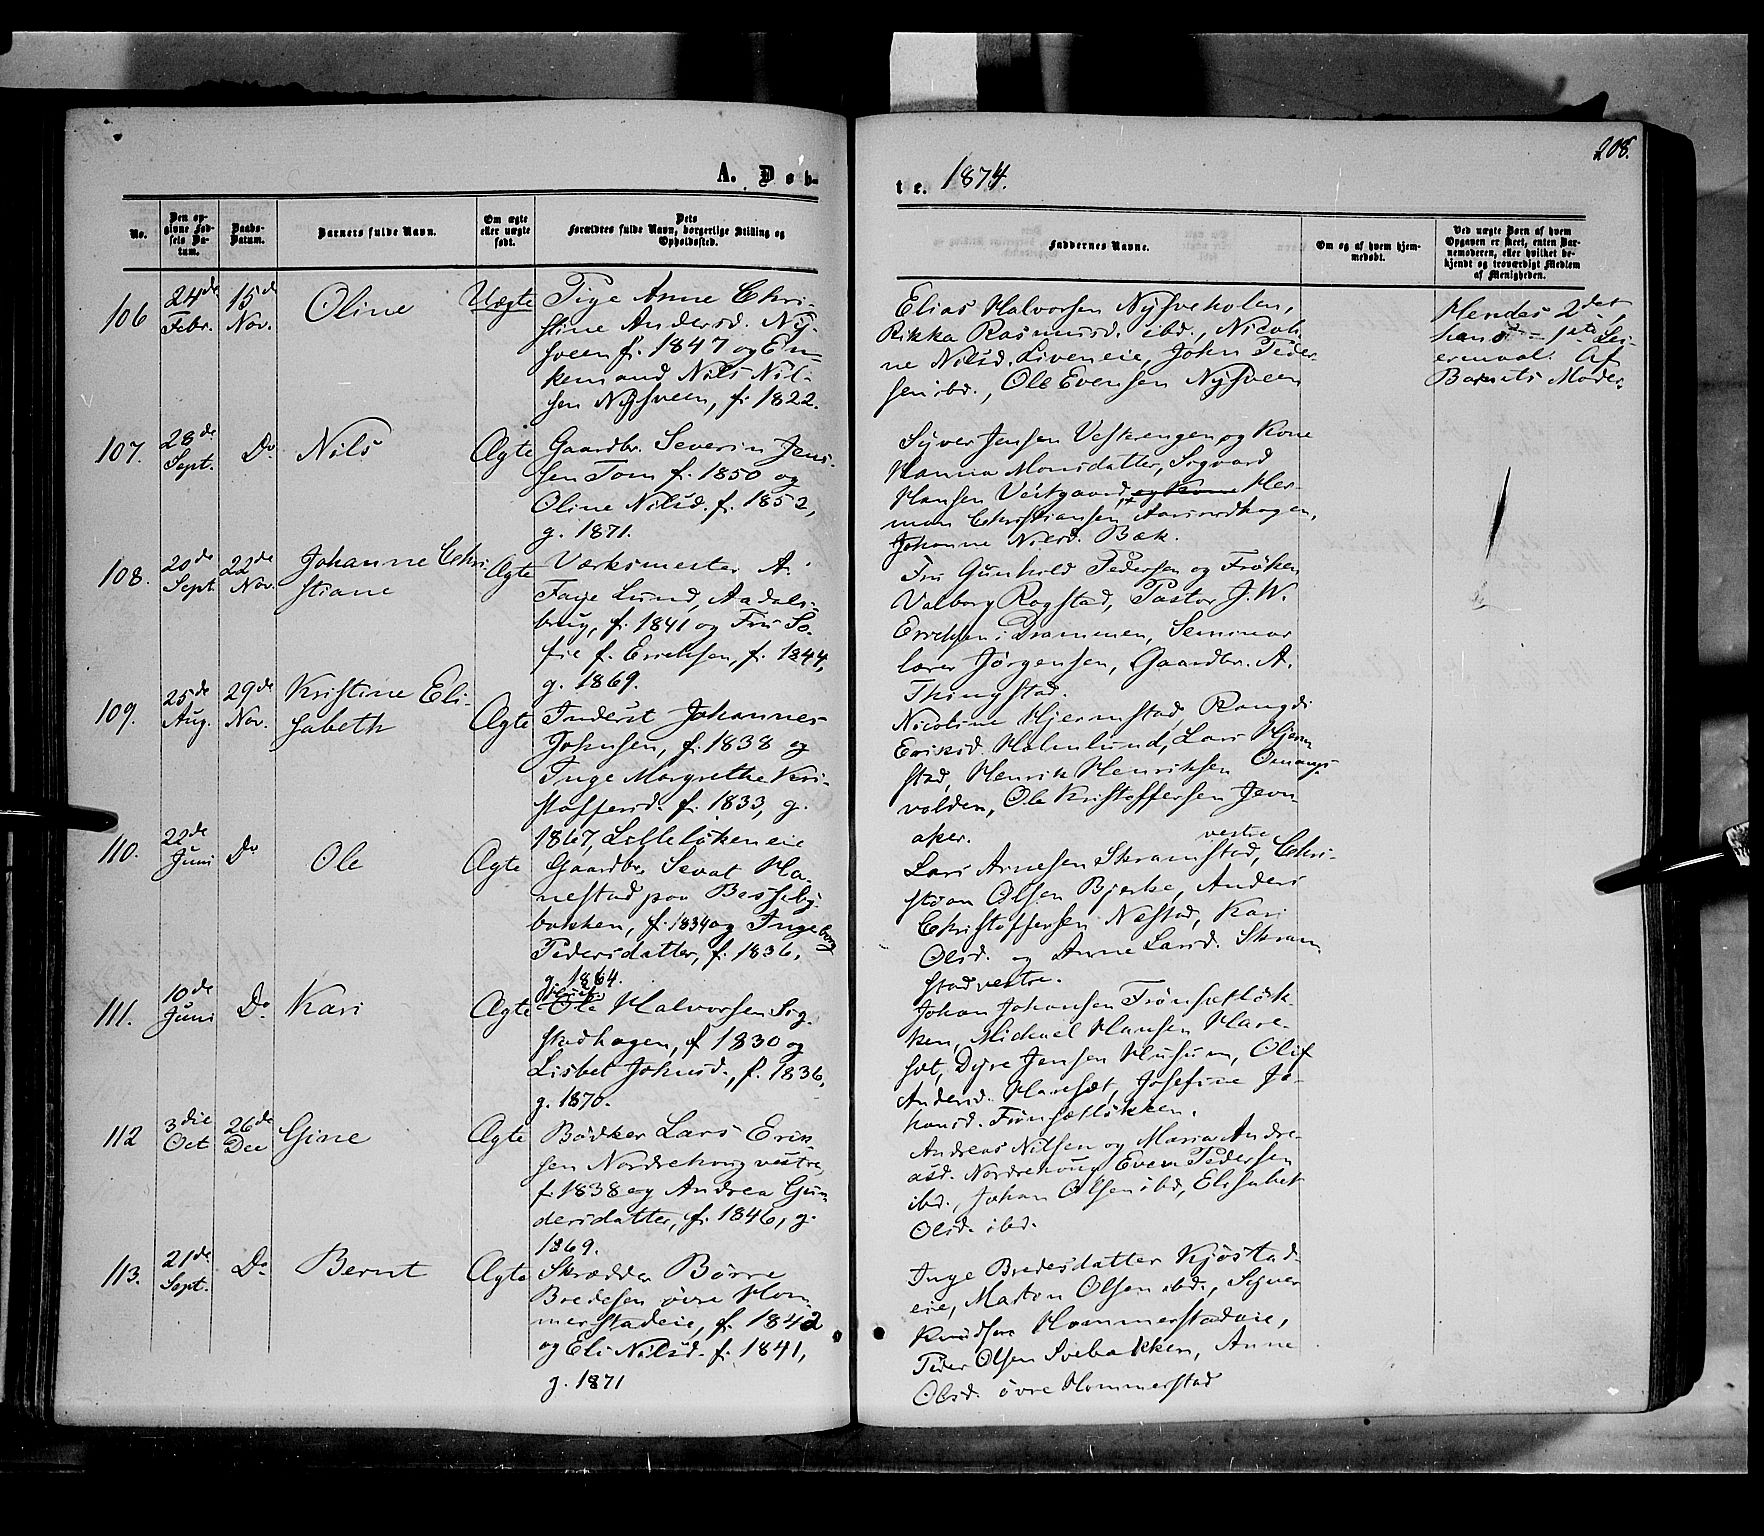 208.
A. Døb-
te. 1874.
No.
Den op-
givne Fød-
sels Da-
tum.
Daabs-
Datum.
Barnets fulde Navn.
Om ægte
eller uægte
født.
Dets
Forældres fulde Navn, borgerlige Stilling og
Opholdssted.
Faddernes Navne.
Om og af hvem hjem-
medøbt.
Ved uægte Børn af hvem
Opgaven er skeet, enten Bar-
nemoderen, eller hvilket be-
kjendt og troværdigt Medlem
af Menigheden.
106
24de
Febr.
15de
Nov.
Oline
Uægte
Pige Anne Chri-
stine Andersd. Ny-
sveen f. 1847 og En-
kemand Nils Nil-
sen Nysveen, f. 1822.
Elias Halvorsen Nysveholen,
Rikka Rasmusd. ibd., Nicoli-
ne Nilsd. Liveneie, John Peder-
sen ibd., Ole Evensen Nysveen
Hendes 2det,
hans 1ste Lei-
ermaal. Af
Barnets Moder
107.
28de
Sept.
Do
Nils
Ægte
Gaardbr. Severin Jen-
sen Tom f. 1850 og
Oline Nilsd. f. 1852,
g. 1871.
Syver Jensen Vestrengen og Kone
Hanna Monsdatter, Sigvard
Hansen Vestgaard, og Kone Her-
man Christiansen
Johanne Nilsd. Bæk.
108.
20de
Sept
22de
Nov.
Johanne Chri-
stiane
Ægte
Værksmester A.
Faye Lund, Aadals-
brug, f. 1841 og Fru So-
fie f. Ericksen, f. 1844,
g. 1869.
Fru Gunhild Pedersen og Frøken
Valborg Rogstad, Pastor J. W.
Ericksen i Drammen, Seminar
lærer Jørgensen, Gaardbr. A.
Thingstad.
109.
25de
Aug.
29de
Nov.
Kristine Eli-
sabeth
Ægte
Inderst Johannes
Johnsen, f. 1838 og
Inge Margrethe Kri-
stoffersd. f. 1833, g.
1867, Lilleløkeneie
Nicoline Hjermstad, Rangdi
Eriksd. Holmlund, Lars Hjerm
stad, Henrik Henriksen Omangs-
volden, Ole Kristoffersen Jevn-
aker.
110.
22de
Juni
Do
Ole
Ægte
Gaardbr. Sevat Ho-
nestad paa Besseby-
bakken, f. 1834 og Ingeborg
Pedersdatter, f. 1836,
g. 1864.
vestre
Lars Arnesen Skramstad, Chri-
stian Olsen Bjerke, Anders
Christoffersen Næstad, Kari
Olsd. og Anne Larsd. Skram
stad vestre.
111.
10de
Juni
Do
Kari
Ægte
Ole Halvorsen Sog-
stadhagen, f. 1830 og
Lisbet Johnsd., f. 1836,
g. 1870.
Johan Johansen Frönsetløk-
ken, Michael Hansen Hare-
set, Dyre Jensen Husum, Olif
Andersd. Hareset, Josefine Jo-
hansd. Frönsetløkken.
112
3die
Oct
26de
Dec
Gine
Ægte
Bødker Lars Erik
sen Nordrehoug vestre,
f. 1838 og Andrea Gun-
dersdatter, f. 1846, g.
1869.
Andreas Nilsen og Maria Andre-
asd. Nordrehoug, Even Pedersen
ibd., Johan Olsen ibd, Elisabet
Olsd. ibd.
113.
21de
Sept.
Do
Bernt
Ægte
Skrædder Børre
Bredesen øvre Hom-
merstadeie, f. 1842
og Eli Nilsd. f. 1841,
g. 1871
Inge Bredesdatter Kjøstad-
eie, Marton Olsen ibd., Syver
Knudsen Hommerstadeie,
Peder Olsen Svebakken, Anne
Olsd. øvre Hommerstad